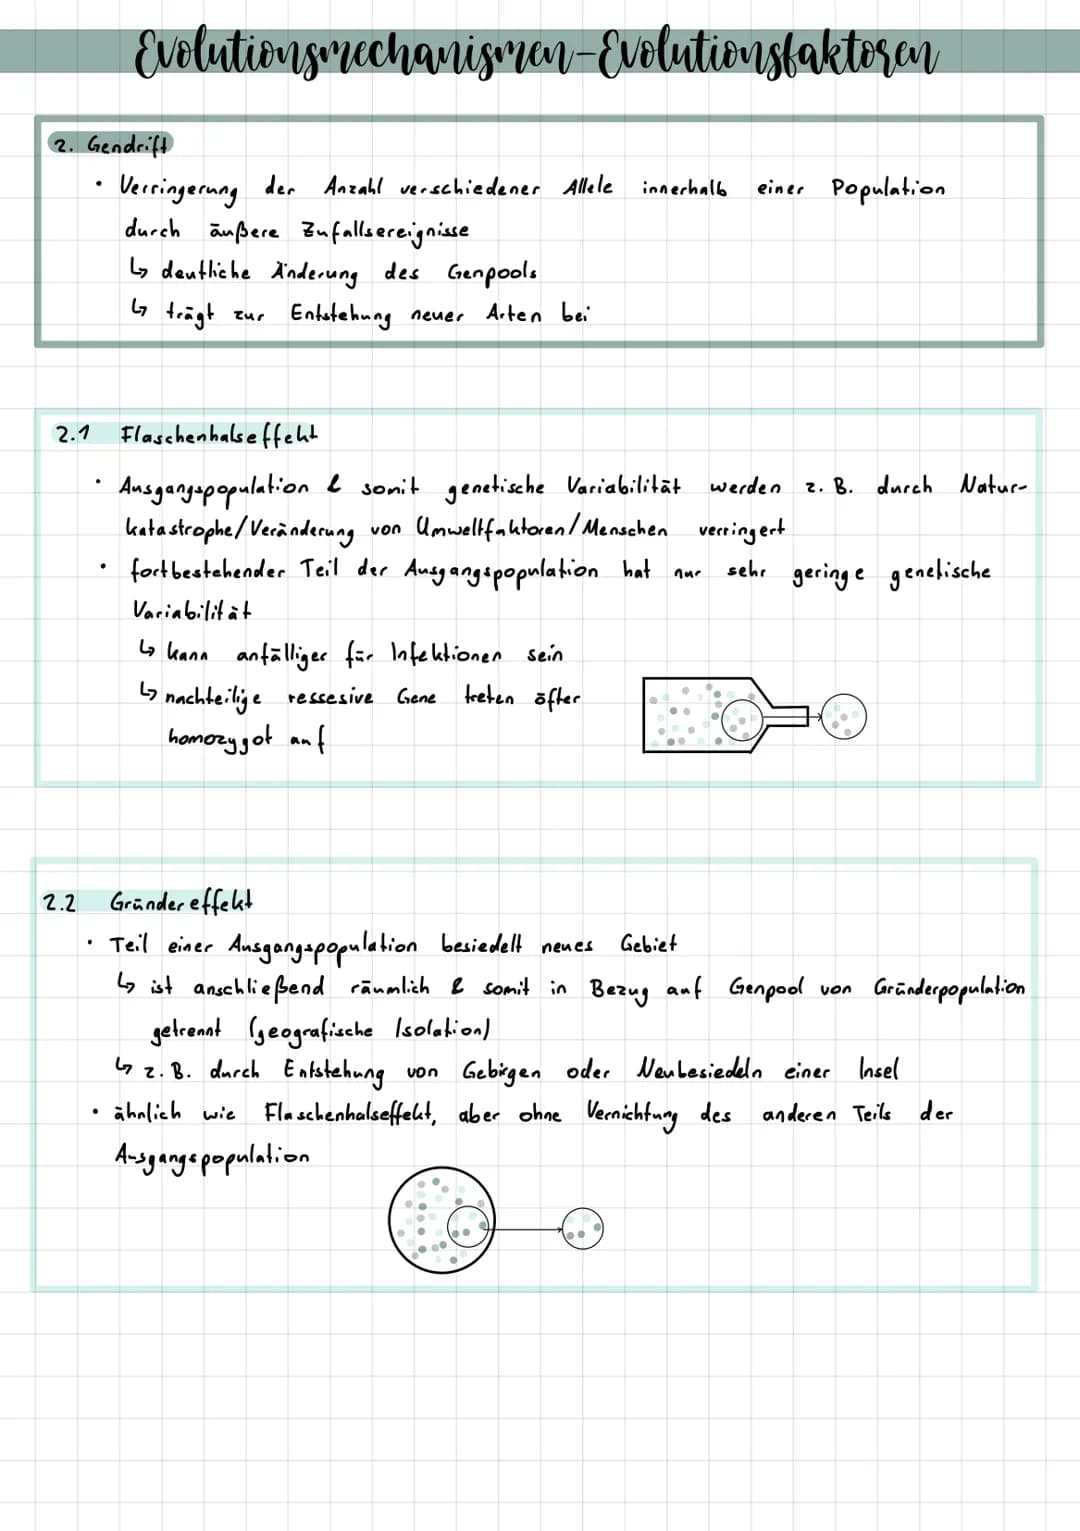 Evolutionsmechanismen-Evolutionsfaktoren
2. Gendrift
• Verringerung der Anzahl verschiedener Allele innerhalb einer Population
durch äußere Zufallsereignisse
↳ deutliche Änderung des Genpools
↳ trägt zur Entstehung neuer Arten bei
2.1 Flaschenhalseffekt
• Ausgangspopulation & somit genetische Variabilität werden z. B. durch Natur-
katastrophe/Veränderung von Umweltfaktoren/Menschen verringert
• fortbestehender Teil der Ausgangspopulation hat nur sehr geringe genetische
Variabilität
↳ kann anfälliger für Infektionen sein
↳ nachteilige ressesive Gene treten öfter
homozygot auf
2.2 Gründereffekt
• Teil einer Ausgangspopulation besiedelt neues Gebiet
↳ ist anschließend räumlich & somit in Bezug auf Genpool von Gründerpopulation
getrennt (geografische Isolation)
↳ z. B. durch Entstehung von Gebirgen oder Neubesiedeln einer Insel
• ähnlich wie Flaschenhalseffekt, aber ohne Vernichtung des anderen Teils der
Ausgangspopulation